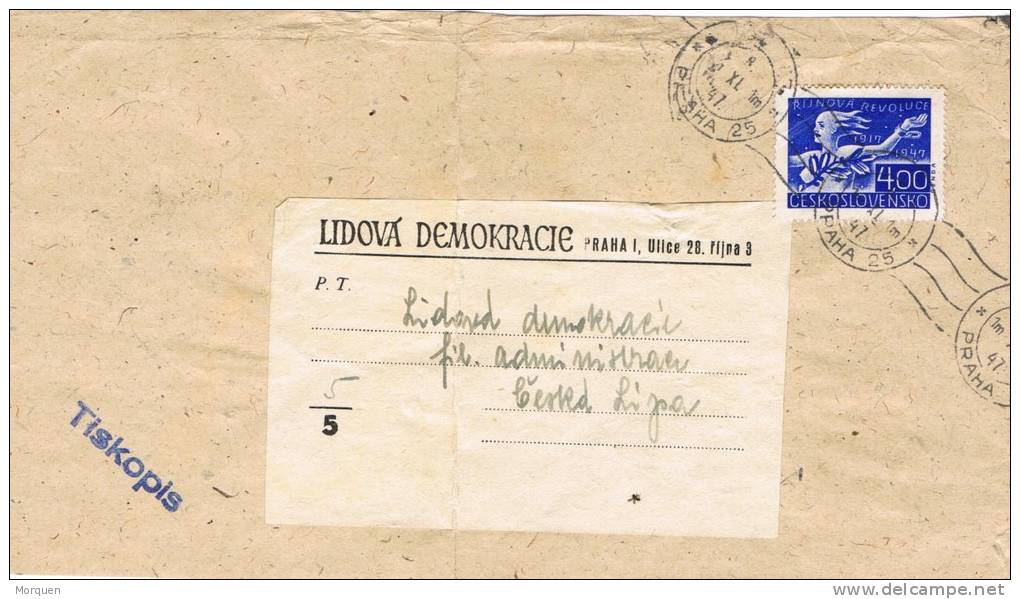 PRAHA 25
XI. 47
1m
ŘÍJNOVÁ REVOLUCE
1917
1947
4.00
ČESKOSLOVENSKO
PRAHA 25
XI. 47
1m
PRAHA
1m
47
LIDOVÁ DEMOKRACIE PRAHA I, Ulice 28. října 3
P. T.
Lidová demokracie
fil. administrace
Česká Lípa
5
5
Tiskopis
Morquen
delcampe.net